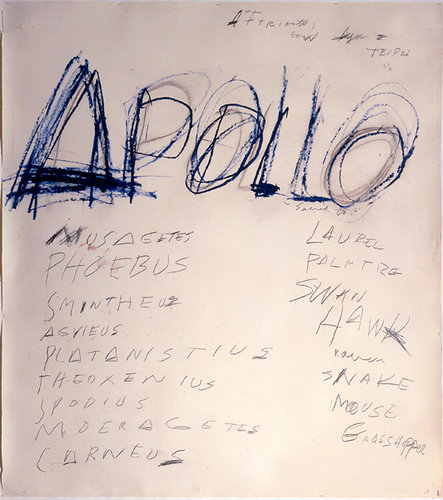 Attributes;
bow
TRIPOD
APOLLO
Sacred to:
MUSAGETES
PHOEBUS
SMINTHEUS
AGVIEUS
PLATANISTIUS
THEOXENIUS
SPODIUS
MOERAGETES
CARNEUS
LAUREL
PALMTREE
SWAN
HAWK
raven
SNAKE
MOUSE
GRASSHOPPER